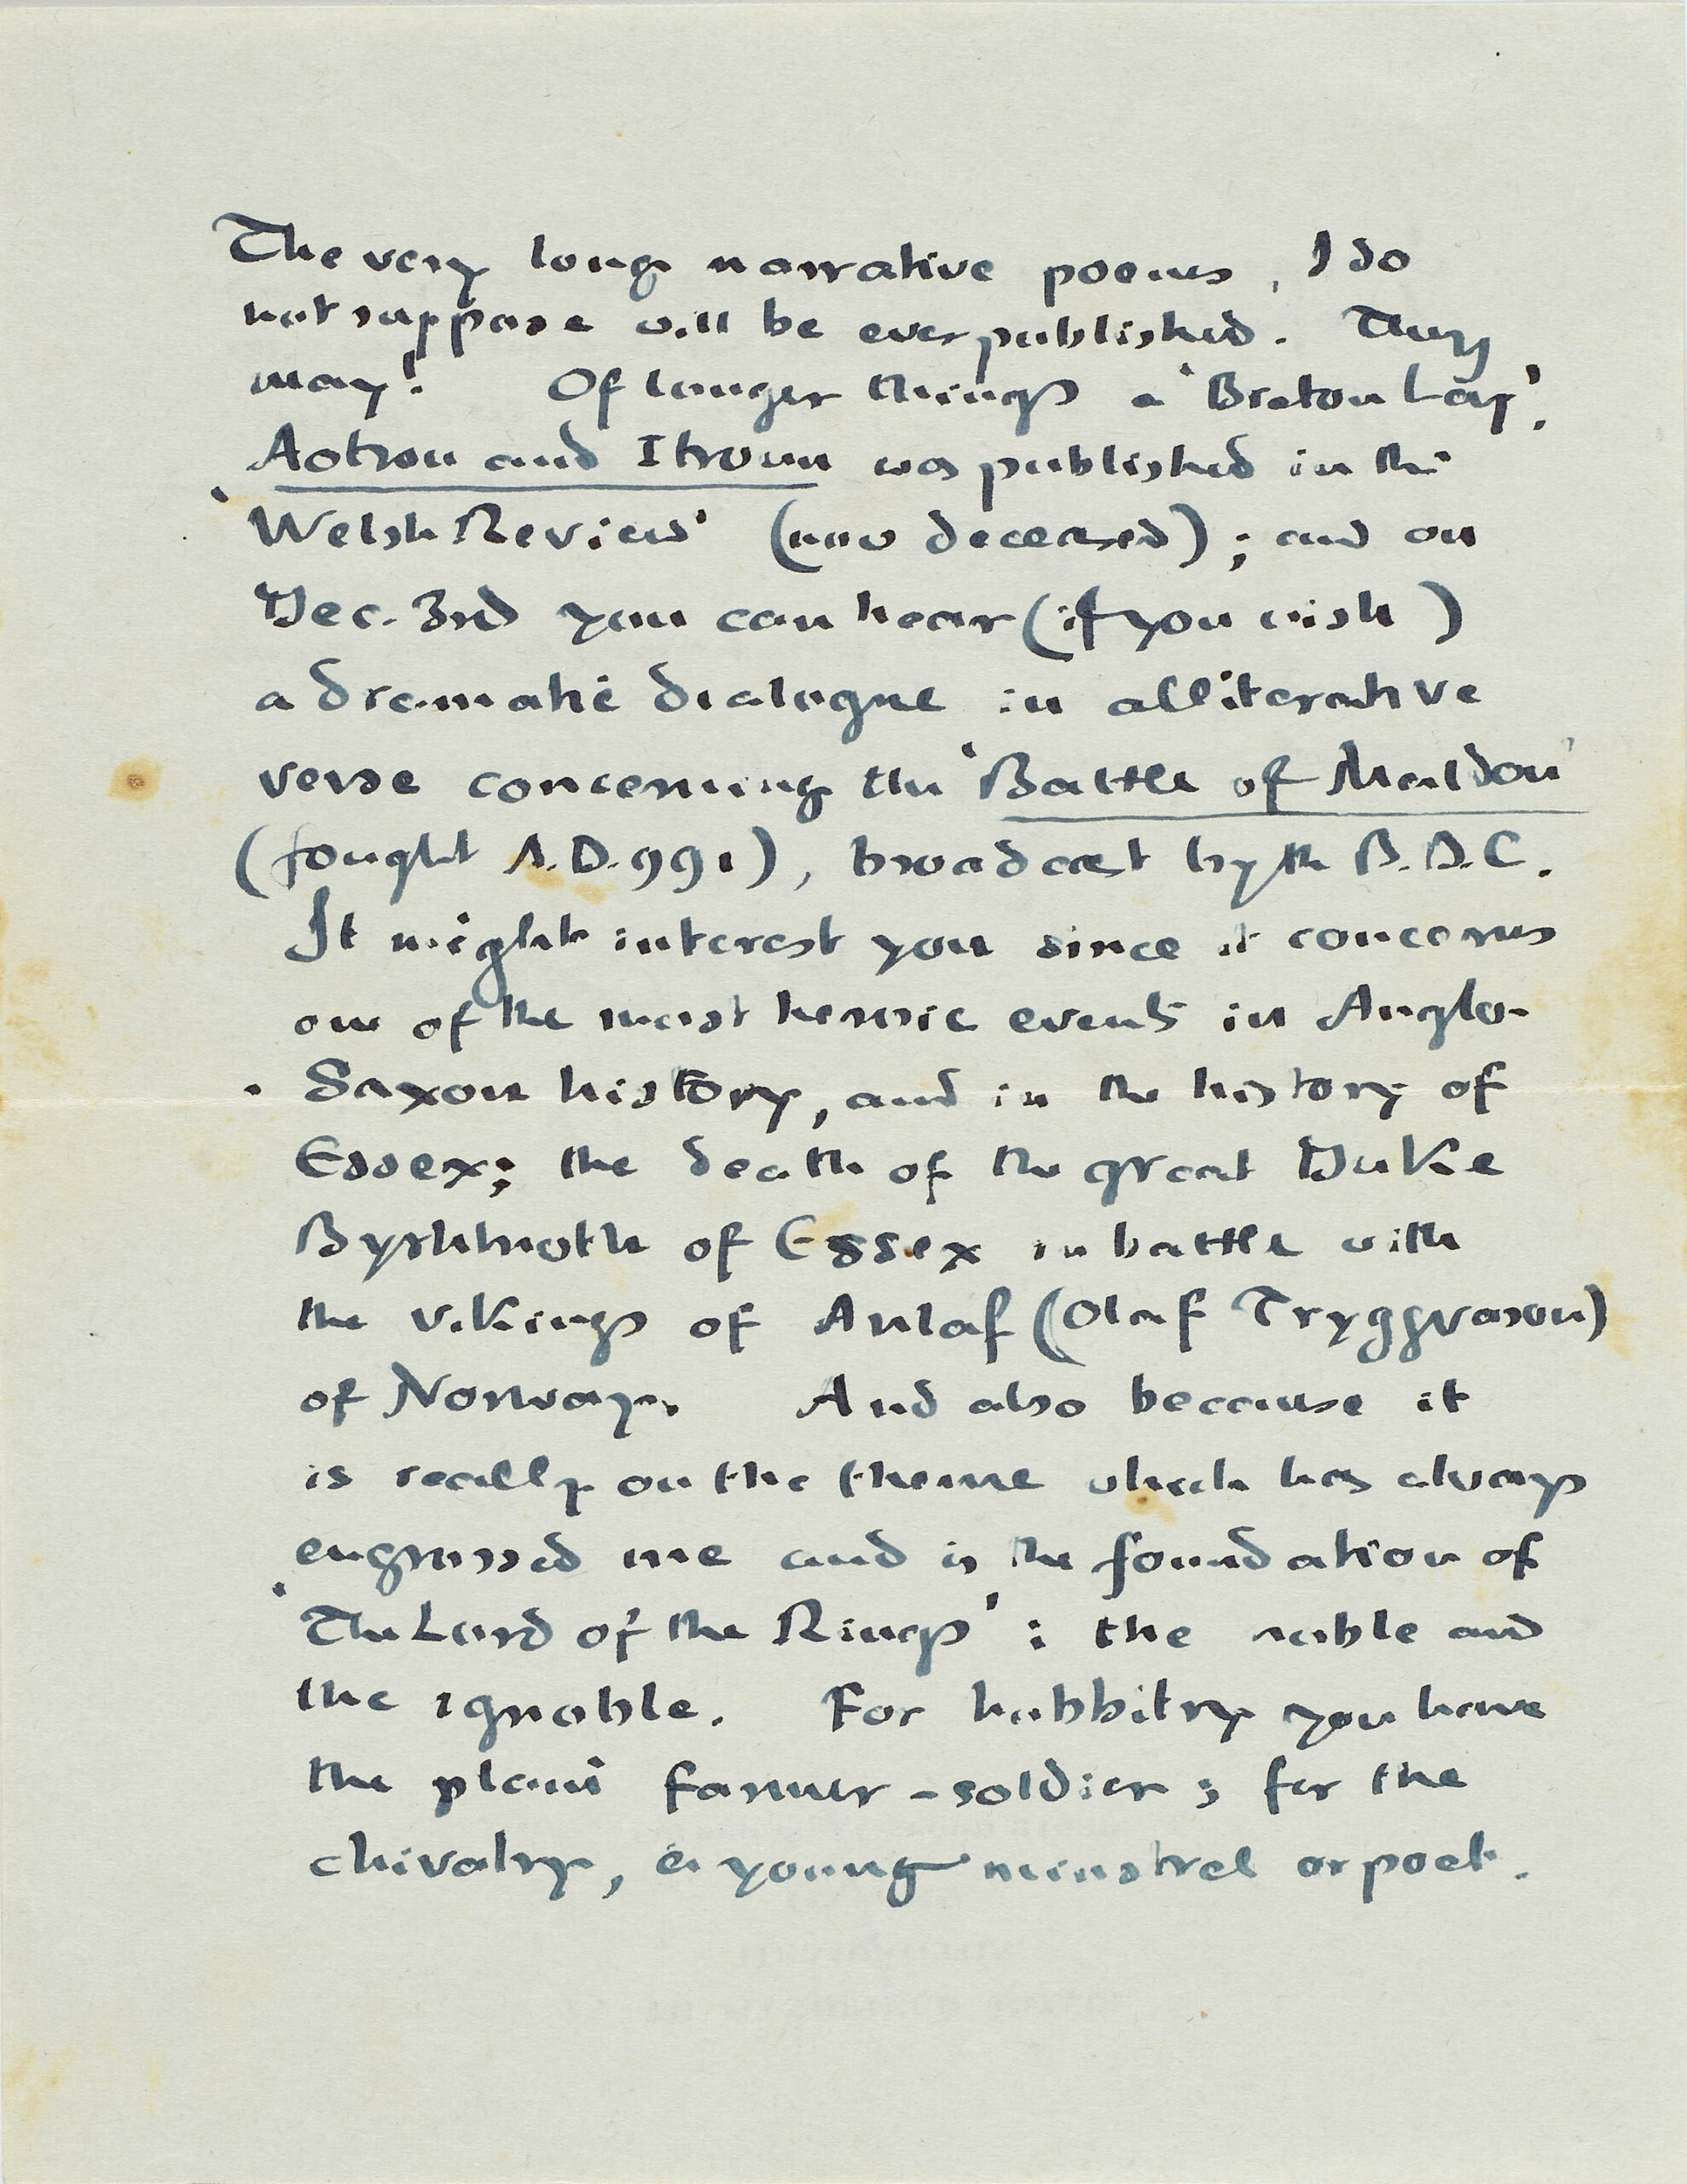 The very long narrative poems, I do
not suppose will be ever published. They
may! Of longer things a 'Breton Lay',
Aotrou and Itroun was published in the
'Welsh Review' (now deceased); and on
Dec. 3rd you can hear (if you wish)
a dramatic dialogue in alliterative
verse concerning the 'Battle of Maldon'
(fought A.D. 991), broadcast by the B.B.C.
It might interest you since it concerns
one of the most heroic events in Anglo-
Saxon history, and in the history of
Essex; the death of the great Duke
Byrhtnoth of Essex in battle with
the vikings of Anlaf (Olaf Tryggvason)
of Norway. And also because it
is really on the theme which has always
engrossed me and is the foundation of
'The Lord of the Rings': the noble and
the ignoble. For hobbitry you have
the plain farmer-soldier; for the
chivalry, a young minstrel or poet.